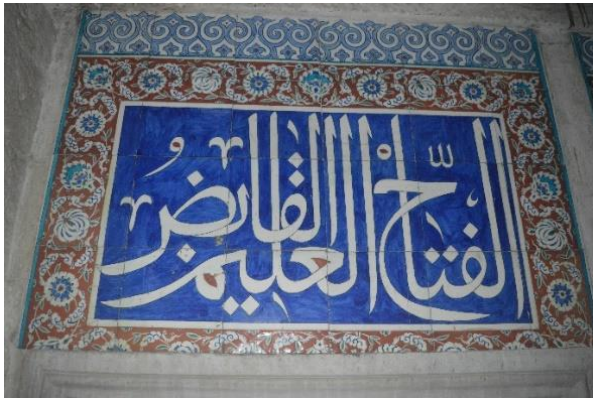 الفتاح العليم القابض